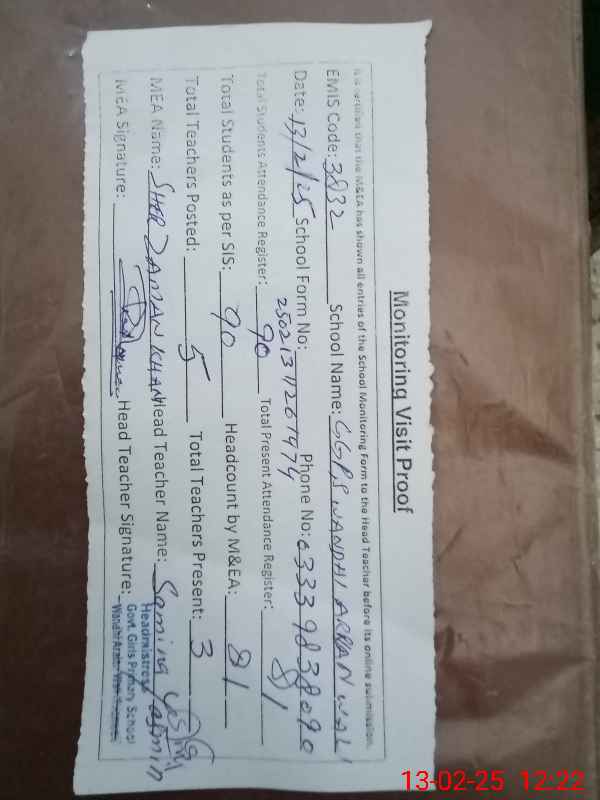 Monitoring Visit Proof
It is certified that the M&EA has shown all entries of the School Monitoring Form to the Head Teacher before its online submission.
EMIS Code: 3832 School Name: GGPS WANDHI ARRAN WALI
Date: 13/2/25 School Form No: Phone No: 03339838090
Total Students Attendance Register: 90 Total Present Attendance Register: 81
Total Students as per SIS: 90 Headcount by M&EA: 81
Total Teachers Posted: 5 Total Teachers Present: 3
MEA Name: SHER ZAMAN KHAN Head Teacher Name: Samina Yasmin
MEA Signature: Head Teacher Signature:
Headmistress
Govt. Girls Primary School
13-02-25 12:22